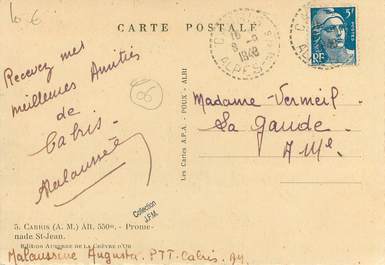 CARTE POSTALE
Recevez mes
meilleures Amitiés
de
Cabris.
Malaussène
06
Madame Vermeil
La Gaude
A Mes
Les Cartes A.P.A. - POUX - ALBI
1948
ALPES
5F
RF
Collection
J.F.M.
5. CABRIS (A. M.) Alt. 550m. - Prome-
nade St-Jean.
Edition Auberge de la Chèvre d'Or
Malaussène Augusta. PTT. Cabris. AM